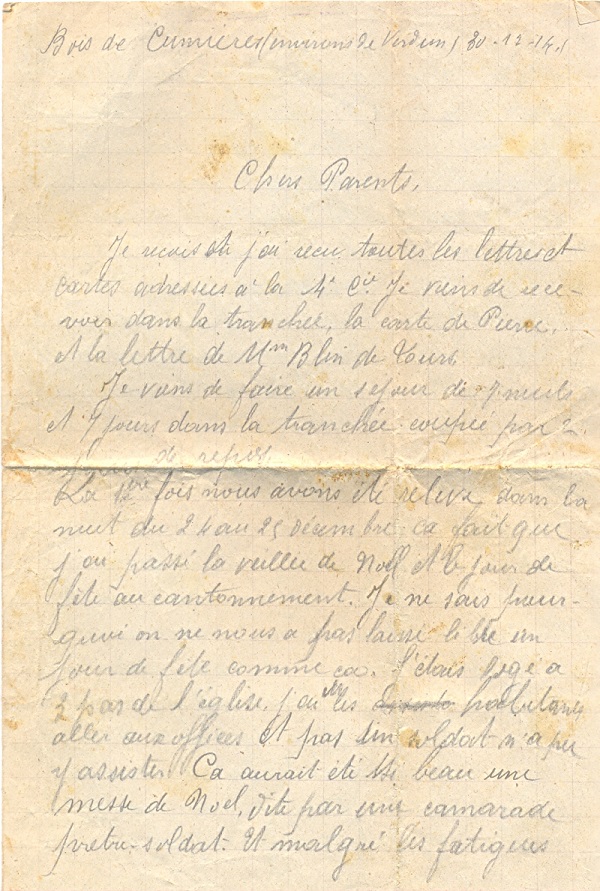 Bois de Cumières (environs de Verdun) 30-12-14.
Chers Parents,
Je recois et j'ai recu toutes les lettres et
cartes adressées à la 4e Cie. Je viens de rece-
voir dans la tranchée, la carte de Pierre,
et la lettre de Mme Blin de Tours
Je viens de faire un sejour de 7 nuits
et 7 jours dans la tranchée coupée par 2
jours de repos.
La 1ère fois nous avons été relevé dans la
nuit du 24 au 25 décembre ça fait que
j'ai passé la veillée de Noël et le jour de
fête au cantonnement. Je ne sais pour-
quoi on ne nous a pas laissé libre un
jour de fête comme ça. J'étais logé à
2 pas de l'église, j'ai vu les habitants
aller aux offices et pas un soldat n'a pu
y assister. Ca aurait été si beau une
messe de Noël, dite par un camarade
pretre-soldat. Et malgré les fatigues